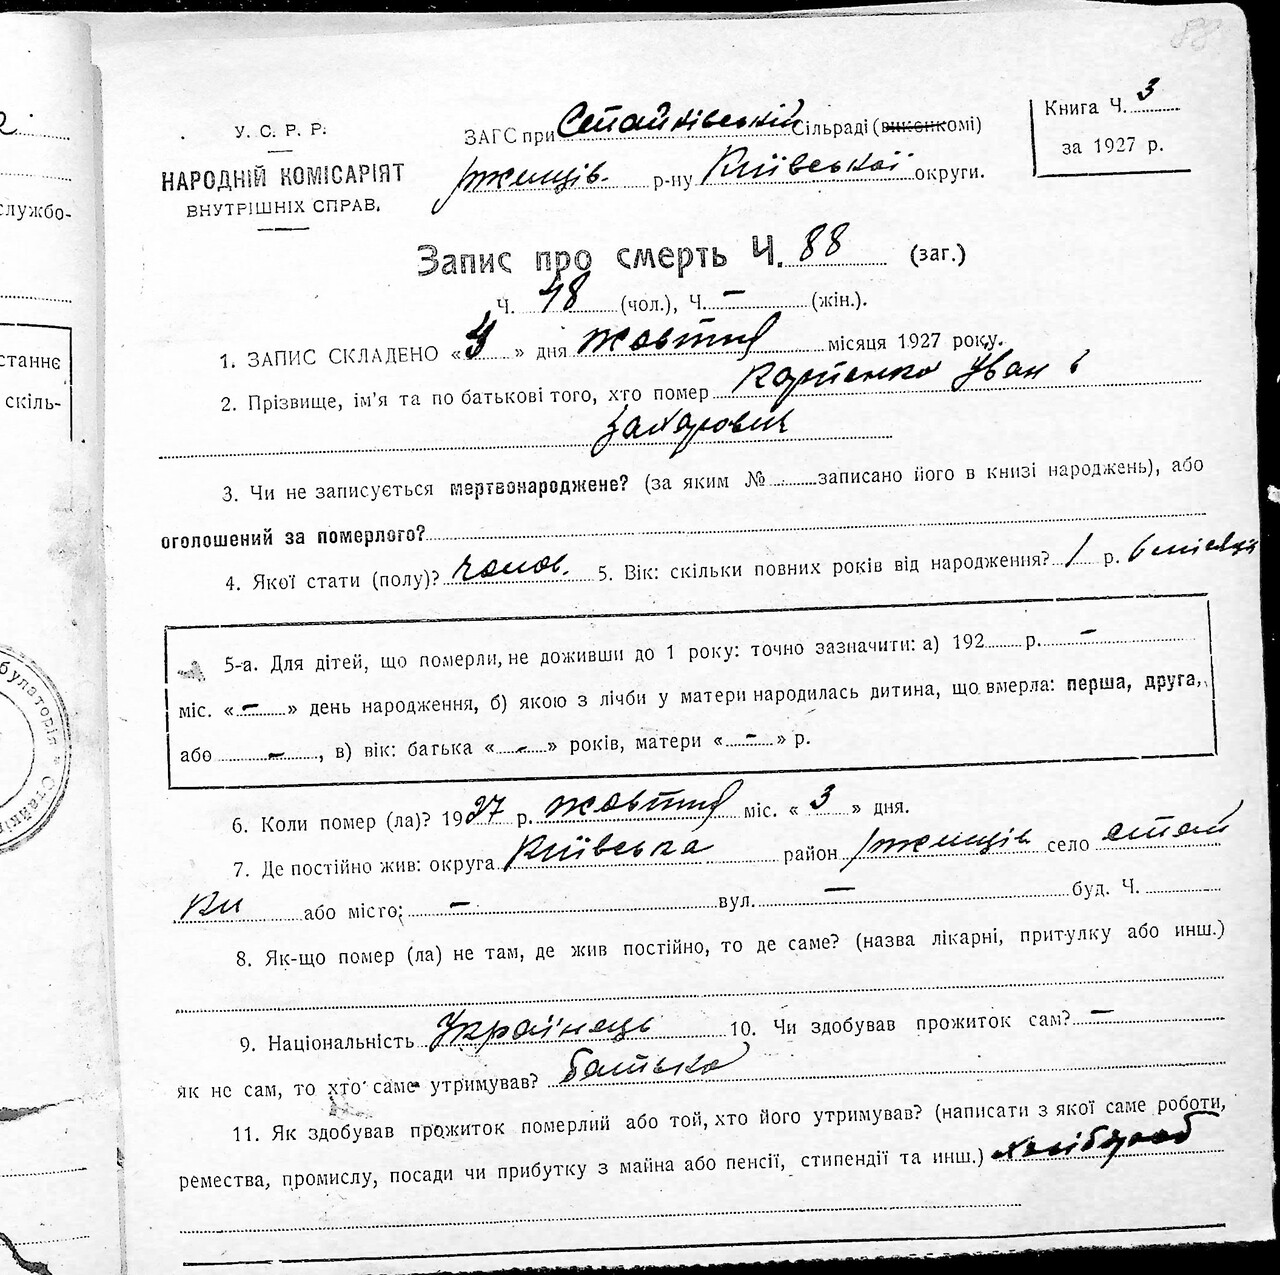 88
У. С. Р. Р.
НАРОДНІЙ КОМІСАРІЯТ
ВНУТРІШНІХ СПРАВ.
ЗАГС при Стайківській Сільраді (виконкомі)
Ржищів. р-ну Київської округи.
Книга Ч. 3
за 1927 р.
Запис про смерть Ч. 88 (заг.)
Ч. 48 (чол.), Ч. – (жін.).
1. ЗАПИС СКЛАДЕНО « 4 » дня жовтня місяця 1927 року.
2. Прізвище, ім'я та по батькові того, хто помер Іван
Захарович
3. Чи не записується мертвонароджене? (за яким № записано його в книзі народжень), або
оголошений за померлого?
4. Якої стати (полу)? чолов. 5. Вік: скільки повних років від народження? 1 р. 6 місяців
5-а. Для дітей, що померли, не доживши до 1 року: точно зазначити: а) 192 р. –
міс. « – » день народження, б) якою з лічби у матери народилась дитина, що вмерла: перша, друга,
або –, в) вік: батька « – » років, матери « – » р.
6. Коли помер (ла)? 1927 р. жовтня міс. « 3 » дня.
7. Де постійно жив: округа Київська район Ржищів село Стай
ки або місто: – вул. – буд. Ч.
8. Як-що помер (ла) не там, де жив постійно, то де саме? (назва лікарні, притулку або инш.)
9. Національність Українець 10. Чи здобував прожиток сам? –
як не сам, то хто саме утримував? батько
11. Як здобував прожиток померлий або той, хто його утримував? (написати з якої саме роботи,
ремества, промислу, посади чи прибутку з майна або пенсії, стипендії та инш.) хлібороб
службо-
станнє
скіль-
булаторія * Стайкі